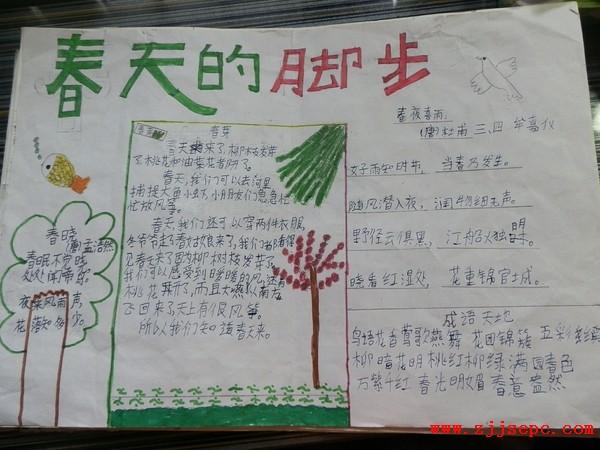 春天的脚步
春芽
春天来了,柳树发芽
了桃花和油菜花者阱了。
春天,我们可以去河里
捕捉大鱼小虾,小朋友们急急忙
忙放风筝。
春天,我们还可以穿两件衣服,
我们可以感受到暖暖的风,还有
桃花开了,而且大燕从南方
飞回来了,天上有很风筝。
所以我们知道春来。
春晓
(唐)孟浩然
春眠不觉晓
处处闻啼鸟
夜来风雨声,
花落知多少。
春夜喜雨
(唐)杜甫 三、四
好雨知时节,当春乃发生。
随风潜入夜,润物细无声。
野径云俱黑,江船火独明。
晓看红湿处,花重锦官城。
成语天地
鸟语花香 莺歌燕舞 花团锦簇 五彩缤纷
柳暗花明 桃红柳绿 满园春色
万紫千红 春光明媚 春意盎然
www.zjjsepc.com